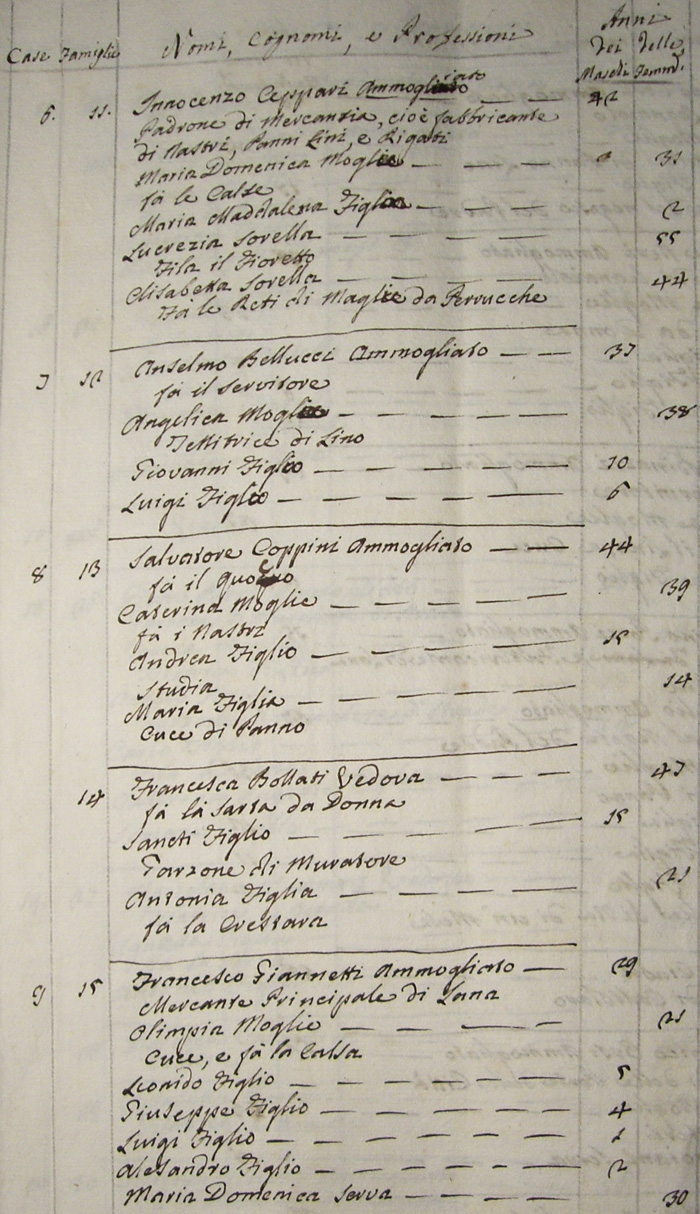 Case Famiglie Nomi, Cognomi, e Professioni Anni dei delle Maschi Femm.
6. 11. Innocenzo Ceppari Ammogliato — — 42
Padrone di Mercanzia, cioè fabbricante
di Nastri, Panni Lini, e Rigatti
Maria Domenica Moglie — — — 31
fà le Calze
Maria Maddalena Figlia — — — 2
Lucrezia Sorella — — — — 55
Fila il Fioretto
Elisabetta Sorella — — — — 44
Fà le Reti di Maglie da Perrucche
7 12 Anselmo Bellucci Ammogliato — — 37
fà il Servitore
Angelica Moglie — — — — 38
Tessitrice di Lino
Giovanni Figlio — — — — 10
Luigi Figlio — — — — — 6
8 13 Salvatore Coppini Ammogliato — — 44
fà il Quoco
Caterina Moglie — — — — 39
fà i Nastri
Andrea Figlio — — — — — 15
Studia
Maria Figlia — — — — — 14
Cuce di Panno
14 Francesca Bollati Vedova — — — 47
fà la Sarta da Donna
Sancti Figlio — — — — 15
Garzone di Muratore
Antonia Figlia — — — — 21
fà la Crestara
9 15 Francesco Giannetti Ammogliato — 29
Mercante Principale di Lana
Olimpia Moglie — — — — 21
Cuce, e fà la Calza
Leonido Figlio — — — — — 5
Giuseppe Figlio — — — — 4
Luigi Figlio — — — — — 1
Alesandro Figlio — — — — — 2
Maria Domenica Serva — — — — 30